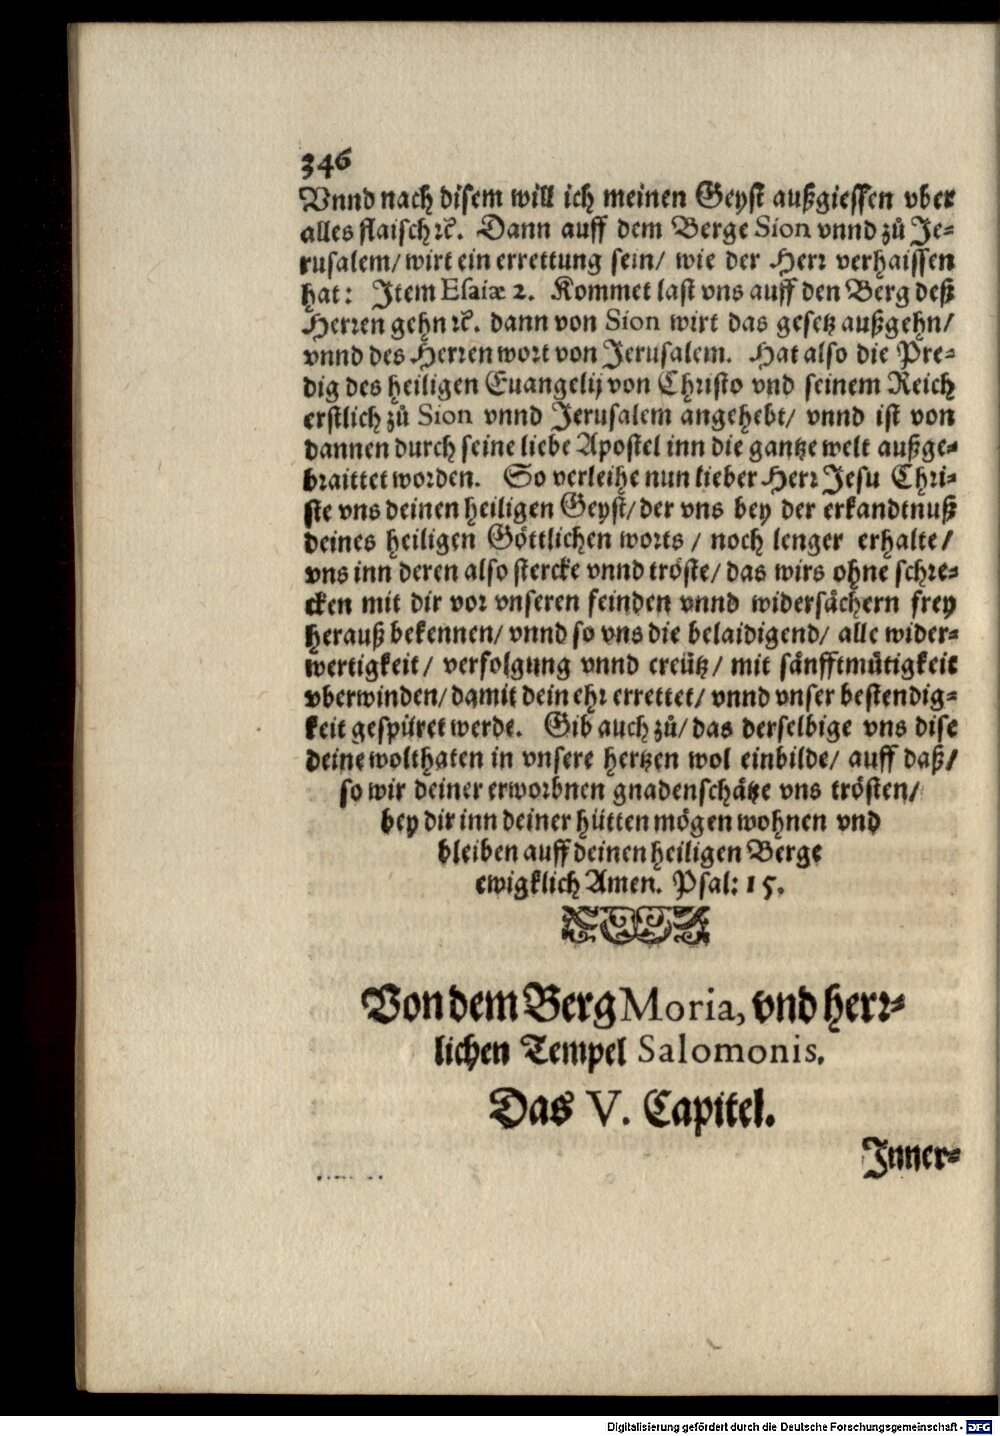 346
Vnnd nach disem will ich meinen Geyst außgiessen vber
alles flaisch ꝛc. Dann auff dem Berge Sion vnnd zů Je⸗
rusalem/ wirt ein errettung sein/ wie der Herr verhaissen
hat: Item Esaiæ 2. Kommet last vns auff den Berg deß
Herren gehn ꝛc. dann von Sion wirt das gesetz außgehn/
vnnd des Herren wort von Jerusalem. Hat also die Pre⸗
dig des heiligen Euangelij von Christo vnd seinem Reich
erstlich zů Sion vnnd Jerusalem angehebt/ vnnd ist von
dannen durch seine liebe Apostel inn die gantze welt außge⸗
braittet worden. So verleihe nun lieber Herr Jesu Chri⸗
ste vns deinen heiligen Geyst/ der vns bey der erkandtnuß
deines heiligen Göttlichen worts / noch lenger erhalte/
vns inn deren also stercke vnnd tröste/ das wirs ohne schre⸗
cken mit dir vor vnseren feinden vnnd widersächern frey
herauß bekennen/ vnnd so vns die belaidigend/ alle wider⸗
wertigkeit/ verfolgung vnnd creütz/ mit sänfftmütigkeit
vberwinden/ damit dein ehr errettet/ vnnd vnser bestendig⸗
keit gespüret werde. Gib auch zů/ das derselbige vns dise
deine wolthaten in vnsere hertzen wol einbilde/ auff daß/
so wir deiner erworbnen gnadenschätze vns trösten/
bey dir inn deiner hütten mögen wohnen vnd
bleiben auff deinen heiligen Berge
ewigklich Amen. Psal: 15.
Von dem Berg Moria, vnd herr⸗
lichen Tempel Salomonis.
Das V. Capitel.
Inner⸗
Digitalisierung gefördert durch die Deutsche Forschungsgemeinschaft - DFG